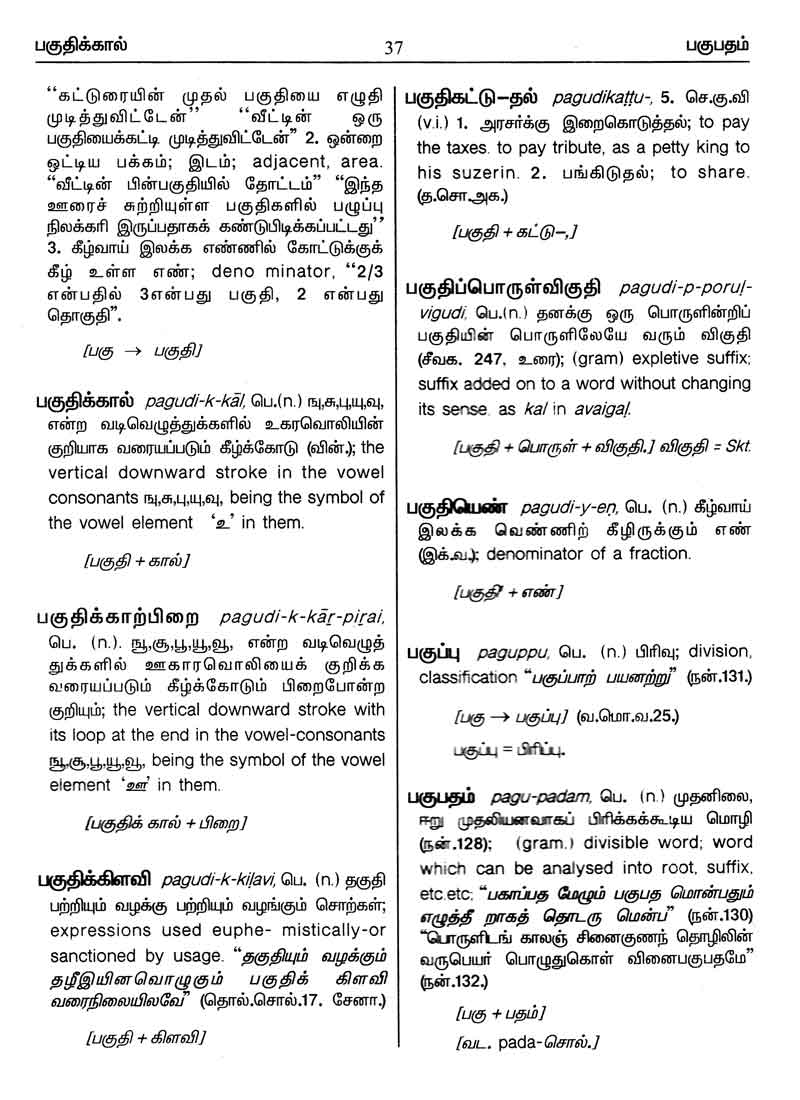 பகுதிக்கால்
37
பகுபதம்
“கட்டுரையின் முதல் பகுதியை எழுதி
முடித்துவிட்டேன்” “வீட்டின் ஒரு
பகுதியைக்கட்டி முடித்துவிட்டேன்” 2. ஒன்றை
ஒட்டிய பக்கம்; இடம்; adjacent, area.
“வீட்டின் பின்பகுதியில் தோட்டம்” “இந்த
ஊரைச் சுற்றியுள்ள பகுதிகளில் பழுப்பு
நிலக்கரி இருப்பதாகக் கண்டுபிடிக்கப்பட்டது’’
3. கீழ்வாய் இலக்க எண்ணில் கோட்டுக்குக்
கீழ் உள்ள எண்; deno minator, “2/3
என்பதில் 3என்பது பகுதி, 2 என்பது
தொகுதி”.
[பகு → பகுதி]
பகுதிக்கால் pagudi-k-kāl, பெ.(n.) ஙு,சு,பு,யு,வு,
என்ற வடிவெழுத்துக்களில் உகரவொலியின்
குறியாக வரையப்படும் கீழ்க்கோடு (வின்.); the
vertical downward stroke in the vowel
consonants ஙு,சு,பு,யு,வு, being the symbol of
the vowel element ‘உ’ in them.
[பகுதி + கால்]
பகுதிக்காற்பிறை pagudi-k-kāṟ-piṟai,
பெ. (n.). ஙூ,சூ,பூ,யூ,வூ, என்ற வடிவெழுத்
துக்களில் ஊகாரவொலியைக் குறிக்க
வரையப்படும் கீழ்க்கோடும் பிறைபோன்ற
குறியும்; the vertical downward stroke with
its loop at the end in the vowel-consonants
ஙூ,சூ,பூ,யூ,வூ, being the symbol of the vowel
element ‘ஊ’ in them.
[பகுதிக் கால் + பிறை]
பகுதிக்கிளவி pagudi-k-kiḷavi, பெ. (n.) தகுதி
பற்றியும் வழக்கு பற்றியும் வழங்கும் சொற்கள்;
expressions used euphe- mistically-or
sanctioned by usage. “தகுதியும் வழக்கும்
தழீஇயினவொழுகும் பகுதிக் கிளவி
வரைநிலையிலவே” (தொல்.சொல்.17. சேனா.)
[பகுதி + கிளவி]
பகுதிகட்டு–தல் pagudikaṭṭu-, 5. செ.கு.வி
(v.i.) 1. அரசர்க்கு இறைகொடுத்தல்; to pay
the taxes. to pay tribute, as a petty king to
his suzerin. 2. பங்கிடுதல்; to share.
(த.சொ.அக.)
[பகுதி + கட்டு–,]
பகுதிப்பொருள்விகுதி pagudi-p-poruḷ-
vigudi, பெ.(n.) தனக்கு ஒரு பொருளின்றிப்
பகுதியின் பொருளிலேயே வரும் விகுதி
(சீவக. 247, உரை); (gram) expletive suffix;
suffix added on to a word without changing
its sense. as kal in avaigaḷ.
[பகுதி + பொருள் + விகுதி.] விகுதி = Skt.
பகுதியெண் pagudi-y-eṇ, பெ. (n.) கீழ்வாய்
இலக்க வெண்ணிற் கீழிருக்கும் எண்
(இக்.வ.); denominator of a fraction.
[பகுதி + எண்]
பகுப்பு paguppu, பெ. (n.) பிரிவு; division,
classification “பகுப்பாற் பயனற்று” (நன்.131.)
[பகு → பகுப்பு] (வ.மொ.வ.25.)
பகுப்பு = பிரிப்பு.
பகுபதம் pagu-padam, பெ. (n.) முதனிலை,
ஈறு முதலியனவாகப் பிரிக்கக்கூடிய மொழி
(நன்.128); (gram.) divisible word; word
which can be analysed into root, suffix,
etc.etc; “பகாப்பத மேழும் பகுபத மொன்பதும்
எழுத்தீ றாகத் தொடரு மென்ப” (நன்.130)
“பொருளிடங் காலஞ் சினைகுணந் தொழிலின்
வருபெயர் பொழுதுகொள் வினைபகுபதமே”
(நன்.132.)
[பகு + பதம்]
[வட. pada-சொல்.]